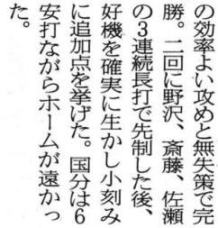 の効率よい攻めと無失策で完
勝。二回に野沢、斎藤、佐瀬
の3連続長打で先制した後、
好機を確実に生かし小刻み
に追加点を挙げた。国分は6
安打ながらホームが遠かっ
た。